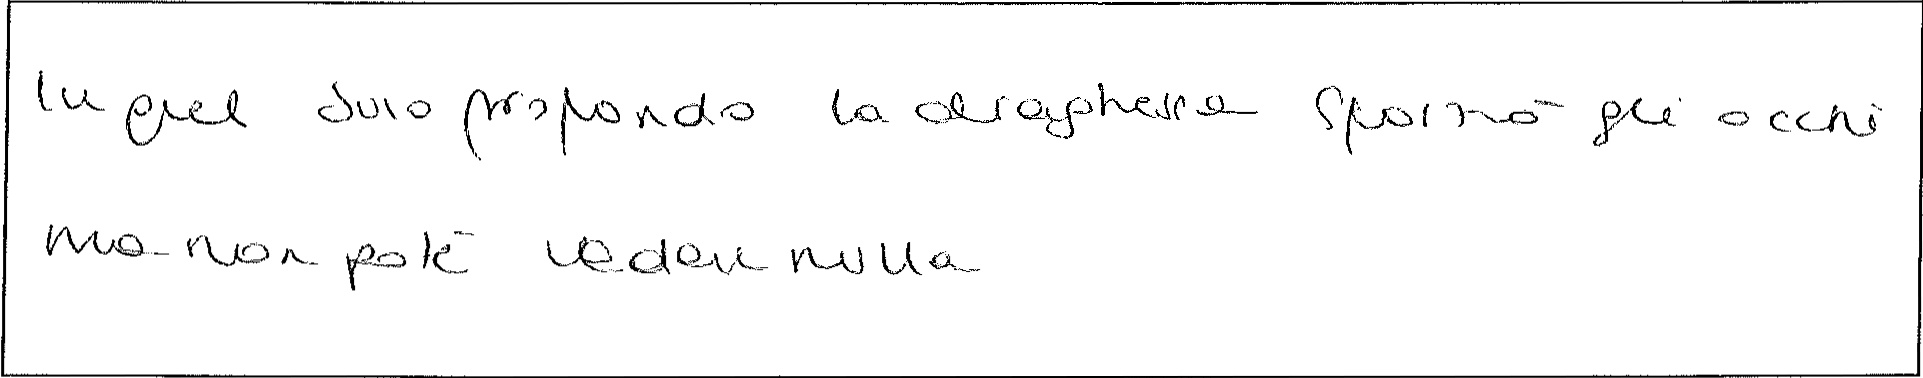 In quel buio profondo la draghessa spalancò gli occhi
ma non poté vedere nulla